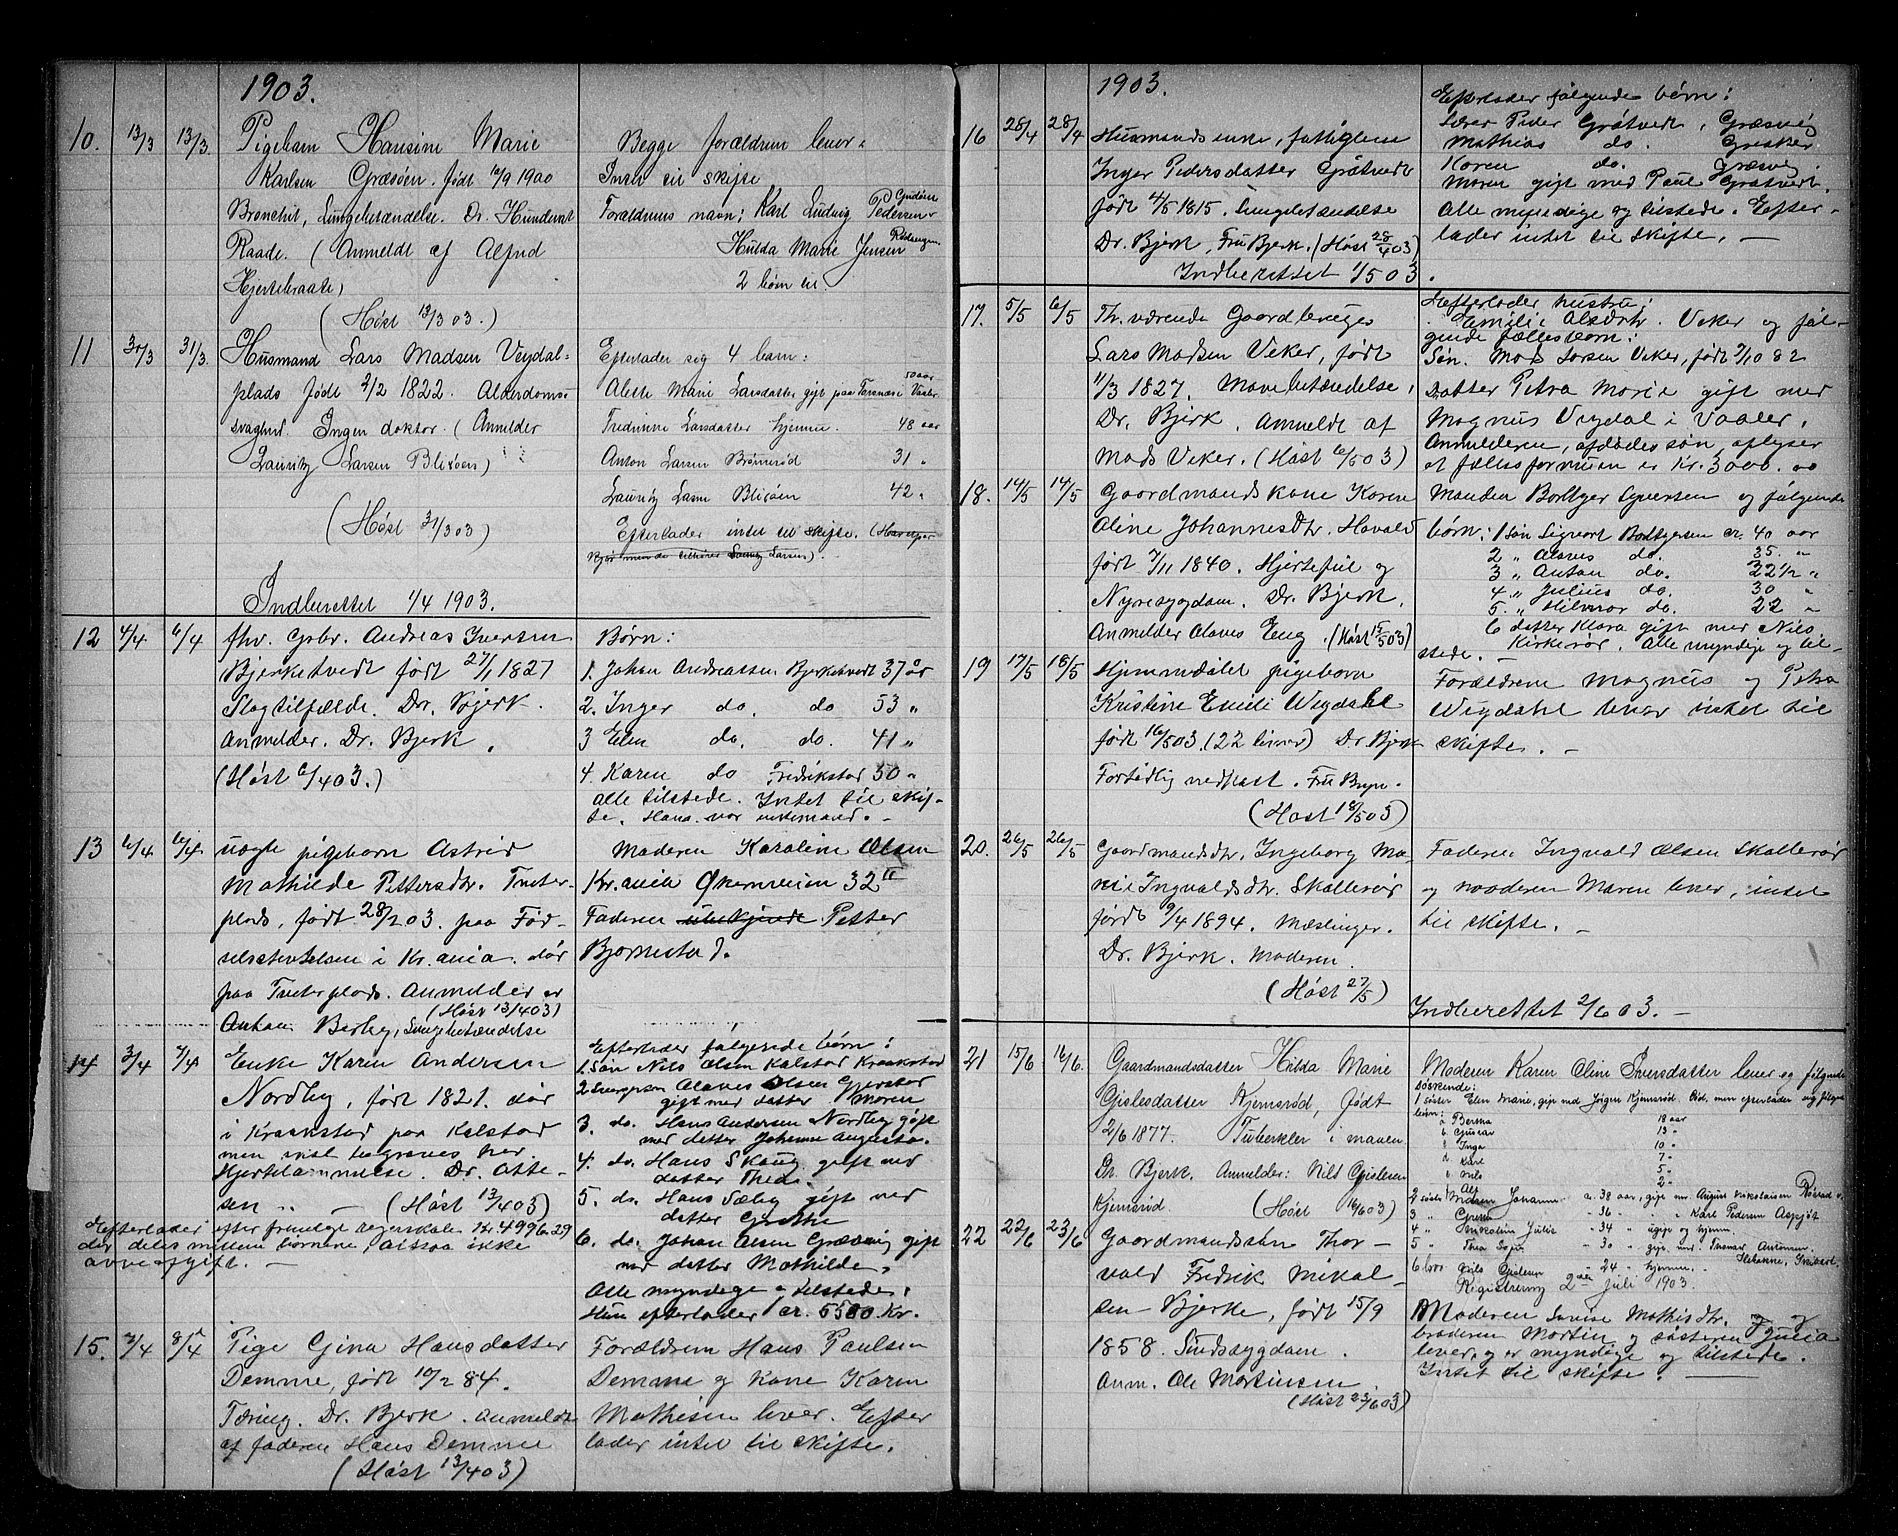 1903.
10. 13/3 13/3. Pigebarn Hansine Marie
Karlsen Græsøen. født 10/9 1900
Bronchit, Lungebetændelse. Dr. Hundevat
Raade. (Anmeldt af Alfred
Hjertebraate)
(Høst 13/3 03.)
Begge forældrem lever.
Intet til skifte
Forældrenes navn: Karl Ludvig Pedersen
Hulda Marie Jensen
2 børn til.
11 30/3 31/3. Husmand Lars Madsen Vejdal=
plads født 2/2 1822. Alderdoms=
svaghed. Ingen doktor. (Anmelder
Lauritz Larsen Blixøen)
(Høst 31/3 03)
Efterlader sig 4 barn:
50 aar
Alette Marie Larsdatter gift paa Tornæs i Vaaler
Fredrinne Larsdatter hjemme. 48 aar
Anton Larsen Brønnerød 31 "
Lauritz Larsen Blixöen 42 "
Efterlader intet til skifte.
Indberettet 1/4 1903.
12 4/4 6/4 fhv. Gsbr. Andreas Iversen
Bjerketvedt født 27/1 1827
Slagtilfælde. Dr. Bjerk.
Anmelder. Dr. Bjerk.
(Høst 6/4 03.)
Børn:
1. Johan Andreassen Bjerketvedt 37 år
2. Inger do. do 53 "
3 Elen do. do. 41 "
4. Karen do Fredrikstad 50 "
Alle tilstede. Intet til skif-
te. Hana var enkemand. -
13 6/4 6/4 uægte pigebarn Astrid
Mathilde Pettersdtr. Tveter-
plads, født 28/2 03. paa Fød-
selsstiftelsen i Kr.ania. død
paa Tveterplads. Anmelder er
(Høst 13/4 03)
Anton Berby, Lungebetændelse
Moderen Karoline Olsen
Kr.ania Økernveien 32 II
Faderen ubekjendt Petter
Bjørnestad.
14 3/4 7/4 Enke Karen Andersen
Nordby, født 1821. død
i Kraakstad paa Kalstad
men skal begraves her.
Hjertelammelse. Dr. Otte-
sen " — (Høst 13/4 03)
Hefterlader efter fremlagt regnskab Kr. 4996.29
der deles mellem børnene, altsaa ikke
arveafgift. —
Efterlader følgende børn:
1. Søn Nils Olsen Kalstad Kraakstad
2. Svigersøn Olaves Olsen Gjerstad
gift med datter Maren
3. do. Hans Andersen Nordby gift
med datter Johanne Augusta.
4. do. Hans Skaug gift med
datter Thea.
5. do. Hans Sæby gift med
datter Grethe
6. do. Johan Olsen Græsvig gift
med datter Mathilde.
Alle myndige og tilstede.
Hun efterlader cr. 5500 Kr.
15. 7/4 8/4 Pige Gina Hansdatter
Demme, født 10/2 84.
Tæring. Dr. Bjerk. Anmeldt
af faderen Hans Demme
(Høst 13/4 03)
Forældrem Hans Paulsen
Demme og kone Karen
Mathisen lever. Efter
lader intet til skifte.
1903.
16 28/4 28/4 Husmandsenke, fattiglem
Inger Pedersdatter Gråtvedt
født 4/5 1815. Lungebetændelse
Dr. Bjerk, Fru Bjerk. (Høst 28/4 03)
Indberettet 1/5 03.
Efterlader følgende børn:
Peder Gråtvedt, Græsvig
Mathias do.
Karen do. Græsvig
Maren gift med Paul Gråtvedt.
Alle myndige og tilstede. Efter-
lader intet til skifte. —
17. 5/5 6/5 Fh.værende Gaardbruger
Lars Madsen Veker, født
11/3 1827. Mavebetændelse,
Dr. Bjerk. Anmeldt af
Mads Veker. (Høst 6/5 03)
Hefterlader hustru:
Emilie Olsdtr. Veker og føl-
gende fællesbarn:
Søn. Mads Larsen Veker, født 7/10 82
Datter Petra Marie gift med
Magnus Vejdal i Vaaler.
Anmelderen, afdødes søn, oplyser
at fællesformuen er Kr. 3000.00
18. 14/5 14/5 Gaardmandskone Karen
Oline Johannesdtr. Havald
født 7/11 1840. Hjertefeil og
Nyresygdom. Dr. Bjerk.
Anmelder Olaves Eng. (Høst 15/5 03)
Manden Bøttger Syversen og følgende
børn: 1 Søn Sigvart Bøttgersen cr. 40 aar
2 " Olaves do. 35. "
3 " Anton do. 32 1/2 "
4 " Julius do. 30 "
5 " Hilmar do. 22 "
6 datter Klara gift med Nils
Kirkerød. Alle myndige og til-
stede. —
19 17/5 18/5 Hjemmedøbt pigebarn
Kristine Emilie Weydahl
født 16/5 03. (22 timer) Dr. Bjerk
Fortidlig nedkast. Fru Bryn.
(Høst 18/5 03)
Forældrene Magnus og Petra
Weydahl lever intet til
skifte. —
20. 26/5 26/5 Gaardmandsdtr. Ingeborg Ma-
rie Ingvaldsdtr. Skallerød
født 9/4 1894. Mæslinger.
Dr. Bjerk. Moderen.
(Høst 27/5)
Faderen Ingvald Olsen Skallerød
og moderen Maren lever, intet
til skifte. —
Indberettet 2/6 03. —
21 15/6 16/6. Gaardmandsdatter Hilda Marie
Gislesdatter Kjemsrød, født
2/6 1877. Tuberkler i maven
Dr. Bjerk. Anmelder: Nils Gislesen
Kjemsrød. (Høst 16/6 03)
Moderen Karen Oline Iversdatter lever og følgende
søskende:
1 søster Elen Marie, gift med Jørgen Kjemsrød. Død, men efterlader sig følgende
børn:
a Bertha 18 aar
b Gustav 13 "
c Inga 10 "
d Karl 7 "
e Nils 5 "
Alf 2 "
2 søster Johanne a. 38 aar, gift m. August Nikolaisen
3 " " 36 " " Karl Pedersen Aspjøt
4 " Julie " 34 " ugift og hjemme.
5 " Thea Sofie " 30 " gift med
6 Nils Gislesen " 24 " hjemme.
Registrering 2den Juli 1903.
22 22/6 23/6 Gaardmandssøn Thor-
vald Fredrik Mikal-
sen Bjerke, født 15/9
1858. Sindssygdom.
Anm. Ole Martinsen.
(Høst 23/6 03)
Moderen Lovise Mathisdtr. og
broderen Martin og søsteren
lever, og er myndige og tilstede.
Intet til skifte. —